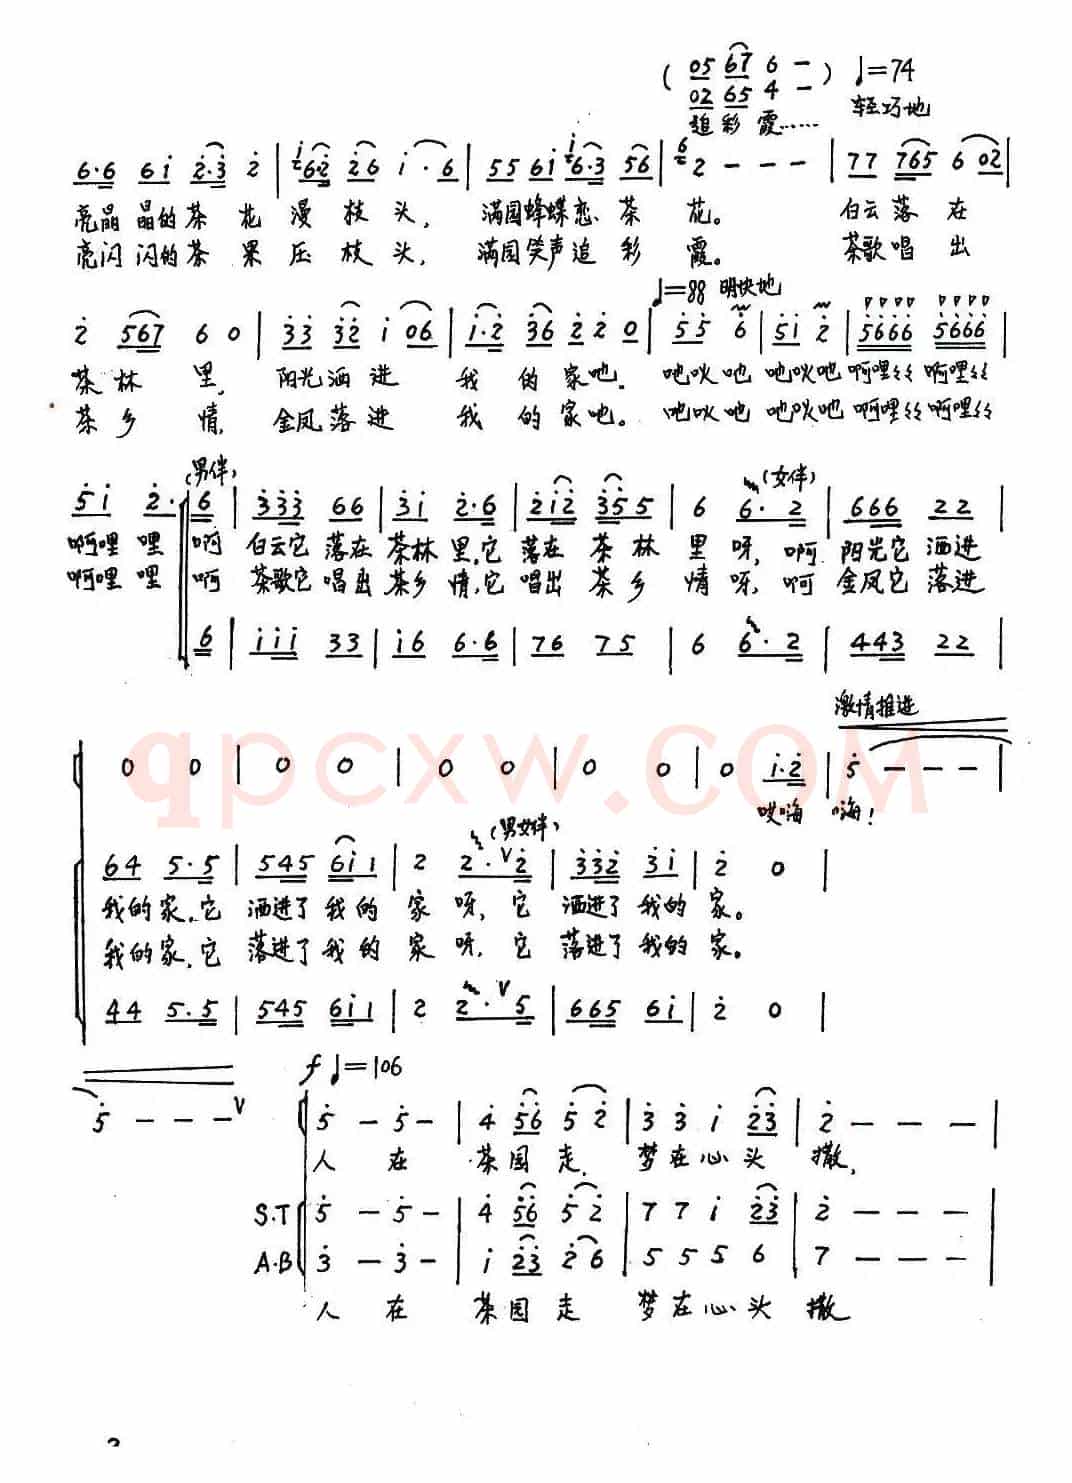 ( 05 67 6 － ) ♩=74
02 65 4 －
追彩霞…… 轻巧地
6·6 6i 2·3 2 | 6·2 26 i · 6 | 55 6i 6·3 56 | 2 － － － | 77 765 6 02 |
亮晶晶的茶花漫枝头，满园蜂蝶恋茶花。白云落在
亮闪闪的茶果压枝头，满园笑声追彩霞。茶歌唱出
♩=88 明快地
2 567 6 0 | 33 32 i 06 | 1·2 36 2 2 0 | 5 5 6 | 5i 2 | 5666 5666 |
茶林里，阳光洒进我的家吔。吔㕭吔 吔㕭吔 啊哩 啊哩
茶乡情，金凤落进我的家吔。吔㕭吔 吔㕭吔 啊哩 啊哩
(男伴) (女伴)
5i 2· 6 | 333 66 | 3i 2·6 | 2i2 355 | 6 6·2 | 666 22 |
啊哩哩 啊 白云它落在茶林里，它落在茶林里呀，啊 阳光它洒进
啊哩哩 啊 茶歌它唱出茶乡情，它唱出茶乡情呀，啊 金凤它落进
6 | iii 33 | i6 6·6 | 76 75 | 6 6·2 | 443 22 |
激情推进
0 0 | 0 0 | 0 0 | 0 0 | 0 i·2 | 5 － － － |
哎嗨 嗨！
qpcxw.COM
(男女伴)
64 5·5 | 545 6i1 | 2 2·V2 | 332 3i | 2 0 |
我的家，它洒进了我的家呀，它洒进了我的家。
我的家，它落进了我的家呀，它落进了我的家。
44 5·5 | 545 6i1 | 2 2·V5 | 665 6i | 2 0 |
f ♩=106
5 － － － V 5 － 5 － | 4 56 5 2 | 3 3 i 23 | 2 － － － |
人在茶园走，梦在心头撒，
S.T 5 － 5 － | 4 56 5 2 | 7 7 i 23 | 2 － － － |
A.B 3 － 3 － | i 23 2 6 | 5 5 5 6 | 7 － － － |
人在茶园走 梦在心头撒